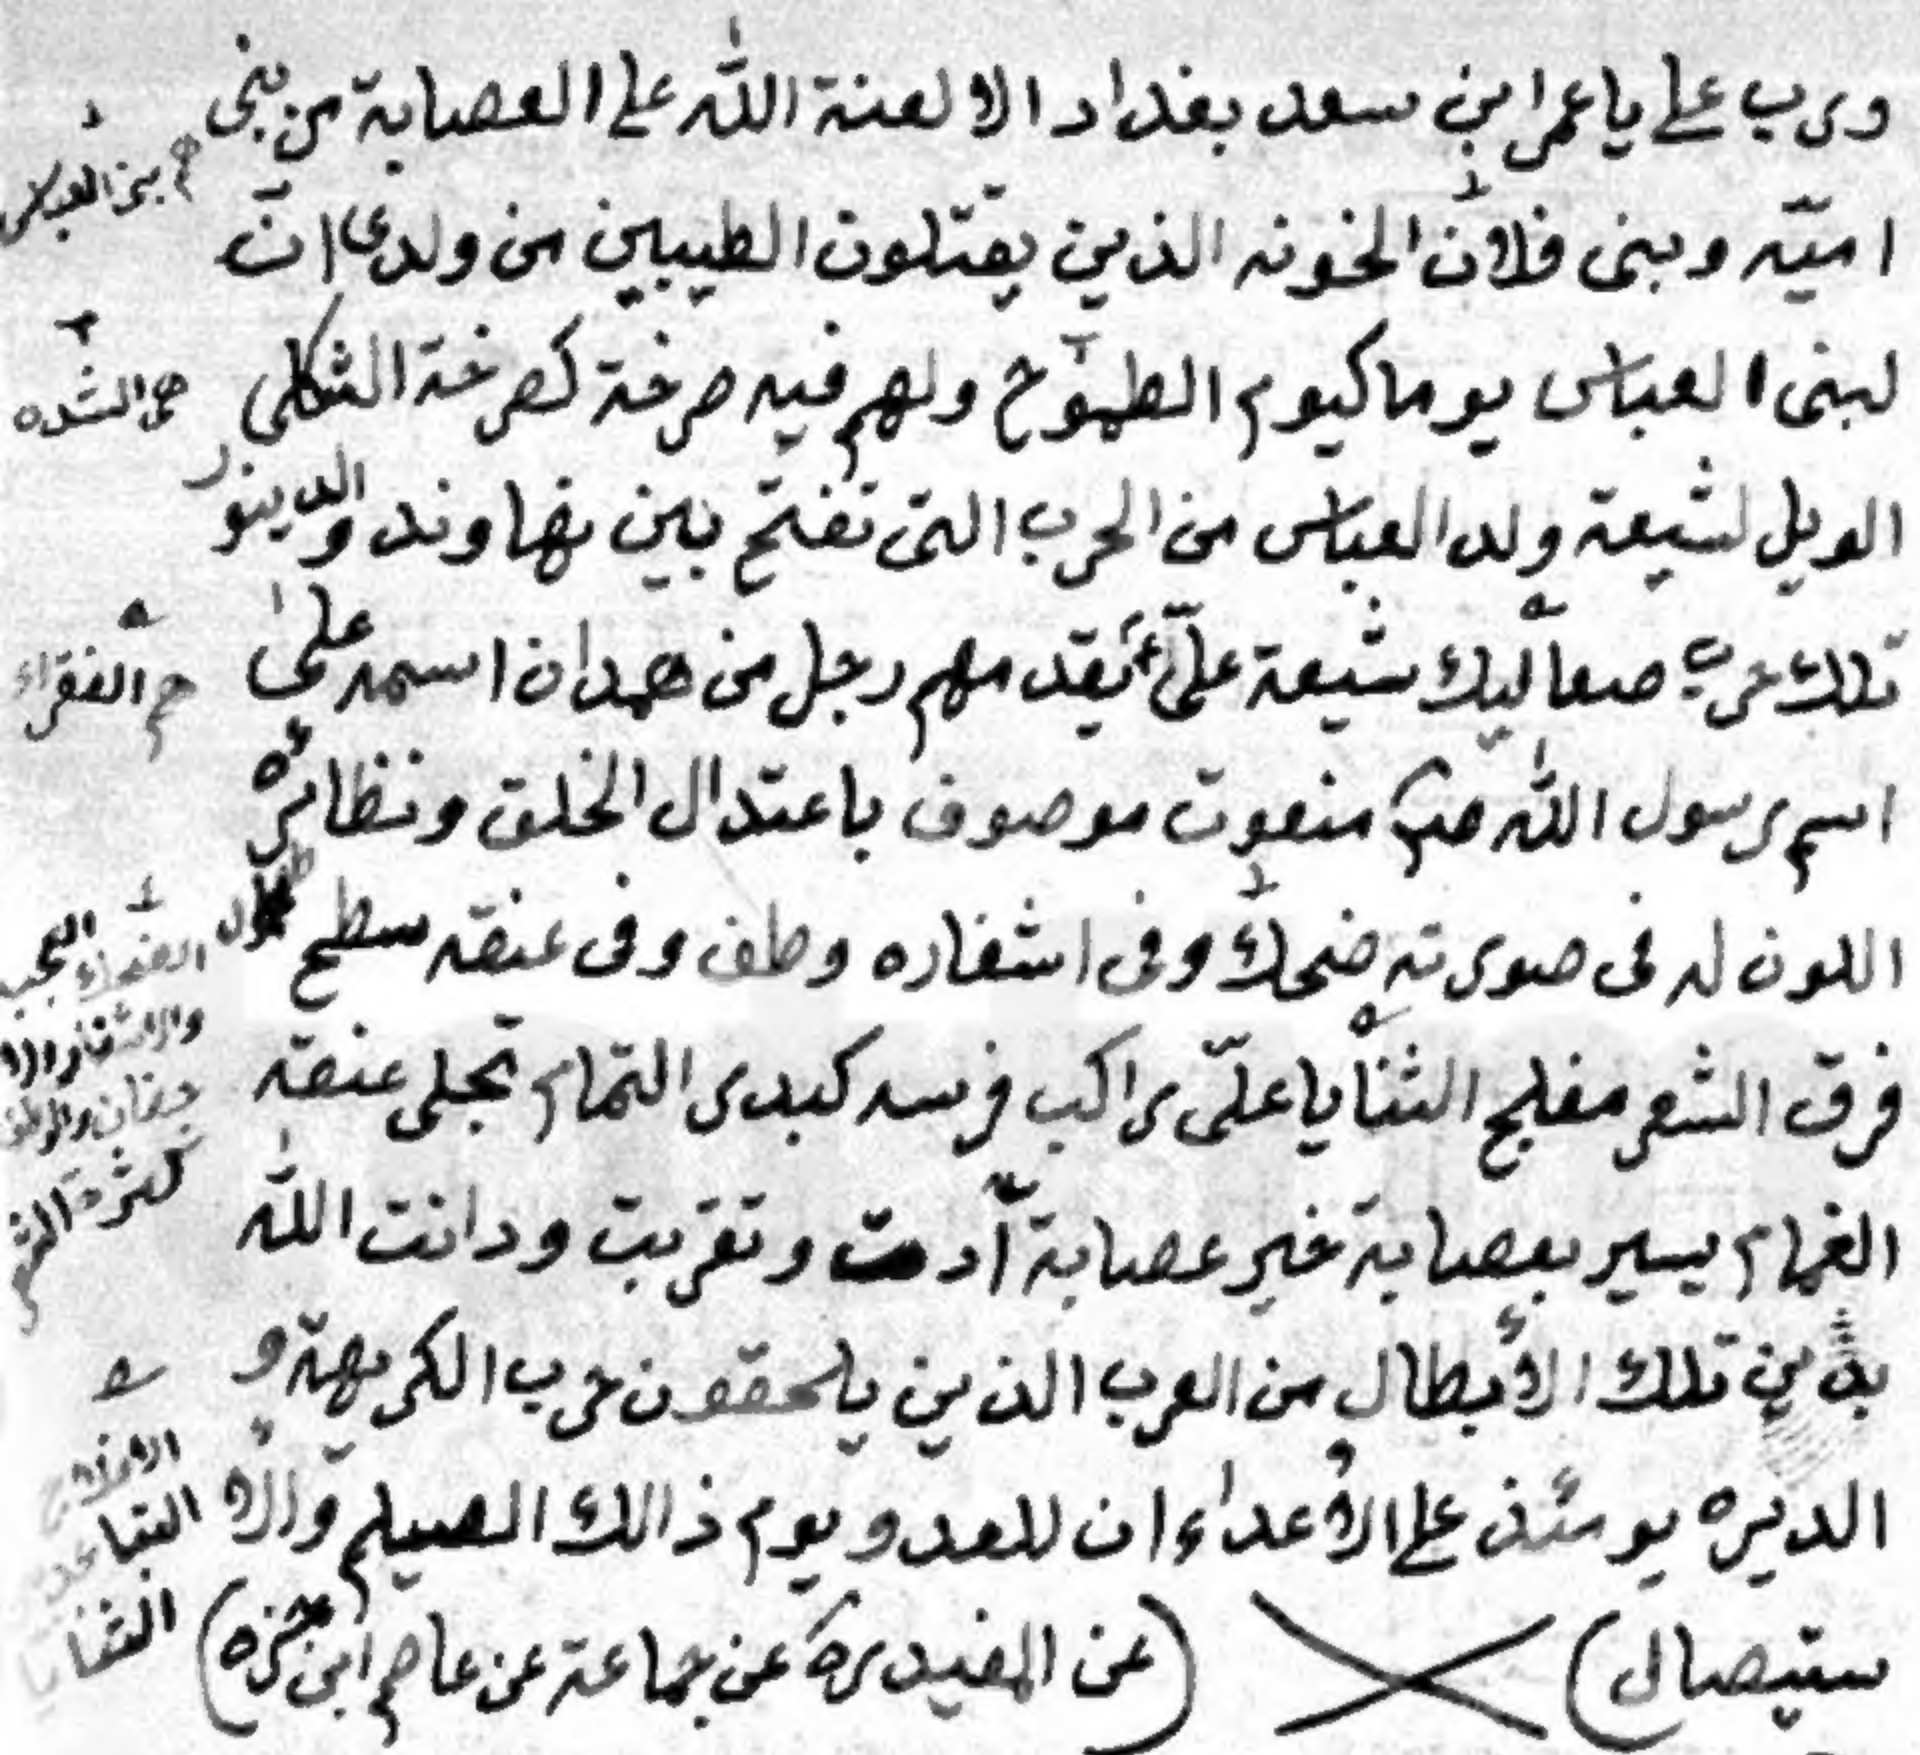 ورب علي يا عمر ابن سعد بغداد الا لعنة الله على العصابة من بنى
اميّه وبنى فلان الخونه الذين يقتلون الطيبين من ولدى ان
لبنى العباس يوما كيوم الطموح ولهم فيه صرخة كصرخة الثكلى
الويل لشيعة ولد العباس من الحرب التى تفتح بين نهاوند والدينور
تلك حرب صعاليك شيعة علىّ يقدمهم رجل من همدان اسمه على
اسم رسول الله منعوت موصوف باعتدال الخلق ونظائره
اللون له فى صورته ضحك وفى اشفاره وطف وفى عنقه سطح
فرق الشعر مفلج الثنايا علىّ راكب فرسه كبدرى التمام تجلى عنقه
الغمام يسير بعصابة خير عصابة آدت وتقربت ودانت الله
بدين تلك الأبطال من العرب الذين يلحقون حرب الكريهة و
الديره يومئذ على الأعداء ان للعدو يوم ذالك الصيلم والا
ستيصال) (عن المفيد ره عن جماعة عن عاصم ابى حمزه)
م بنى العباس
م الفقراء
كثرة
الثنايا